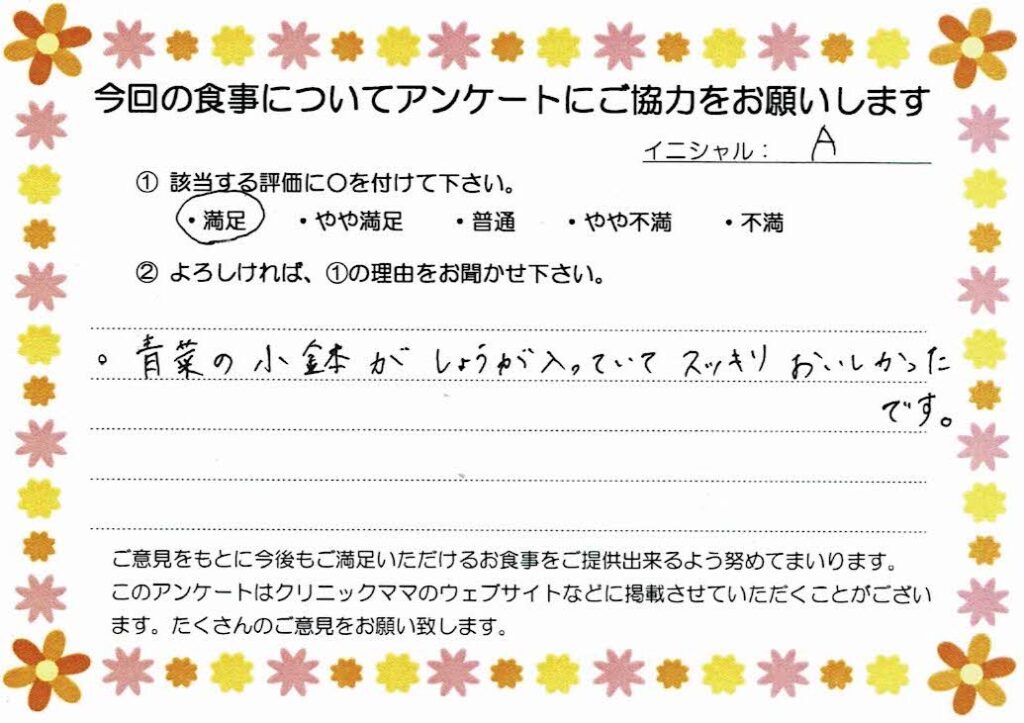 今回の食事についてアンケートにご協力をお願いします
イニシャル： A
① 該当する評価に〇を付けて下さい。
・満足 ・やや満足 ・普通 ・やや不満 ・不満
② よろしければ、①の理由をお聞かせ下さい。
。青菜の小鉢がしょうが入っていてスッキリおいしかった
です。
ご意見をもとに今後もご満足いただけるお食事をご提供出来るよう努めてまいります。
このアンケートはクリニックママのウェブサイトなどに掲載させていただくことがござい
ます。たくさんのご意見をお願い致します。